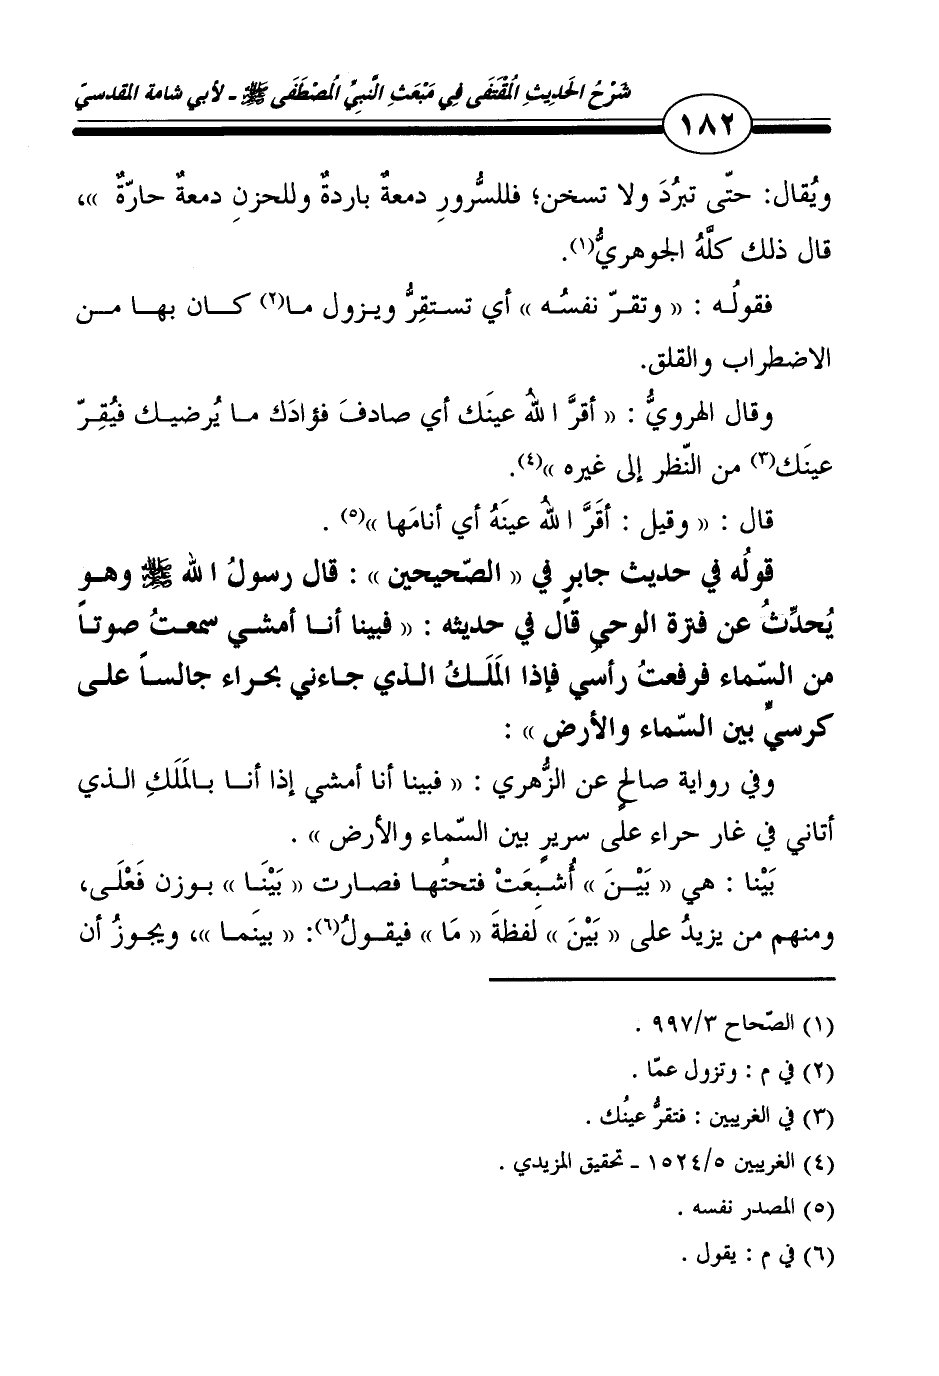 شَرْحُ الحَدِيثِ المُقْتَفَى فِي مَبْعَثِ النَّبِيِّ المُصْطَفَى ﷺ ـ لأبي شامة المقدسيّ
١٨٢
ويُقال: حتّى تبرُدَ ولا تسخن؛ فللسُّرورِ دمعةٌ باردةٌ وللحزنِ دمعةٌ حارّةٌ »،
قال ذلك كلَّهُ الجوهريُّ(١).
فقولُه : « وتقرّ نفسُه » أي تستقِرُّ ويزول ما(٢) كان بها من
الاضطراب والقلق.
وقال الهرويُّ : « أقرَّ اللهُ عينَك أي صادفَ فؤادَك ما يُرضيك فيُقِرّ
عينَك(٣) من النّظر إلى غيره »(٤).
قال : « وقيل : أقَرَّ اللهُ عينَهُ أي أنامَها »(٥) .
قولُه في حديث جابرٍ في « الصّحيحين » : قال رسولُ الله ﷺ وهو
يُحدِّثُ عن فترة الوحيِ قال في حديثه : « فبينا أنا أمشي سمعتُ صوتاً
من السّماء فرفعتُ رأسي فإذا المَلَكُ الذي جاءني بحراء جالساً على
كرسيٍّ بين السّماء والأرض » :
وفي رواية صالحٍ عن الزُّهري : « فبينا أنا أمشي إذا أنا بالمَلَكِ الذي
أتاني في غار حراء على سريرٍ بين السّماء والأرض » .
بَيْنا : هي « بَيْنَ » أُشبِعَتْ فتحتُها فصارت « بَيْنَا » بوزن فَعْلَى،
ومنهم من يزيدُ على « بَيْنَ » لفظةَ « مَا » فيقولُ(٦): « بينَما »، ويجوزُ أن
(١) الصّحاح ٩٩٧/٣ .
(٢) في م : وتزول عمّا .
(٣) في الغريبين : فتقرُّ عينُك .
(٤) الغريبين ١٥٢٤/٥ ـ تحقيق المزيدي .
(٥) المصدر نفسه .
(٦) في م : يقول .